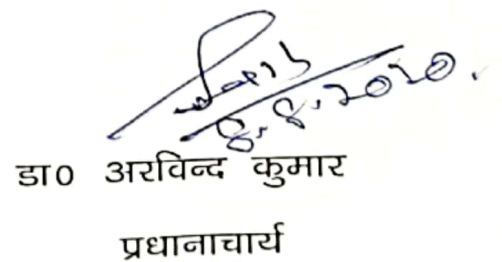 8.8.2020.
डा० अरविन्द कुमार
प्रधानाचार्य